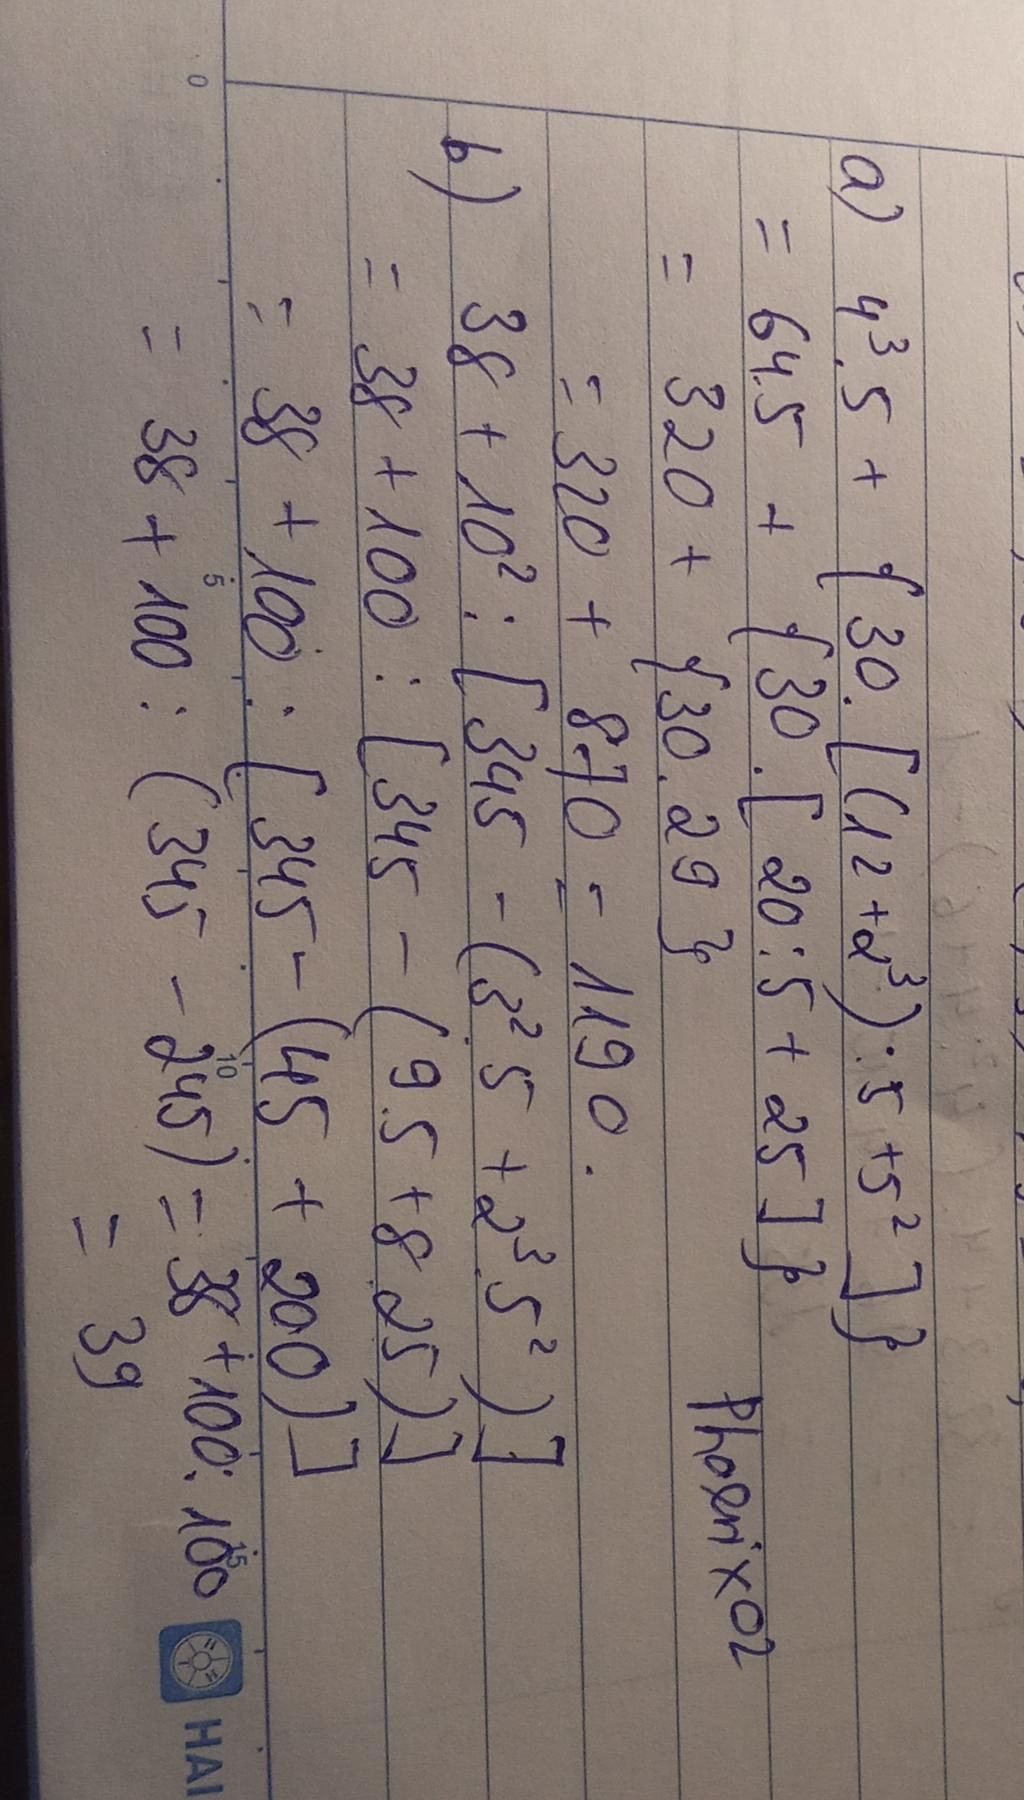 a) 4³.5 + {30.[(12+2³):5+5²]}
= 64.5 + {30.[20:5+25]}
= 320 + {30.29}
= 320 + 870 = 1190.
Phoenix02
b) 38 + 10² : [345 - (3².5 + 2³.5²)]
= 38 + 100 : [345 - (9.5 + 8.25)]
= 38 + 100 : [345 - (45 + 200)]
= 38 + 100 : (345 - 245) = 38 + 100 : 100
= 39
0 5 10 15
HAI